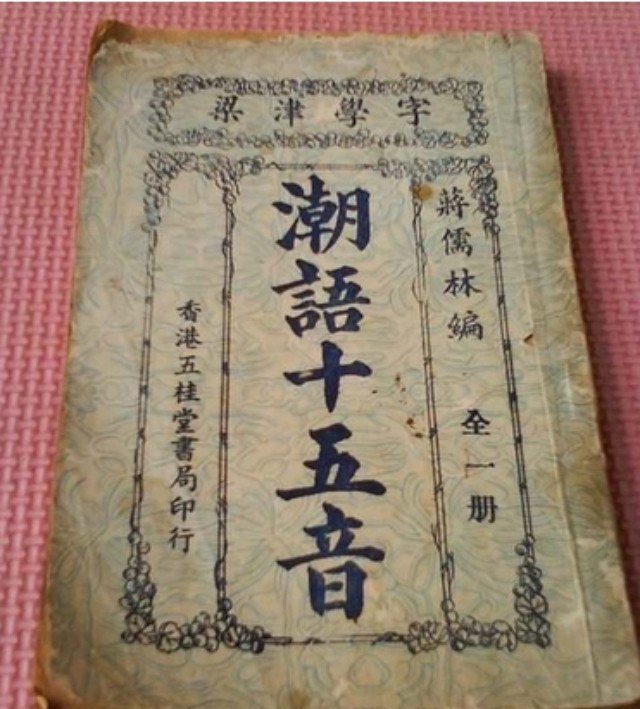 字學津梁
蔣儒林編
全一册
潮語十五音
香港五桂堂書局印行